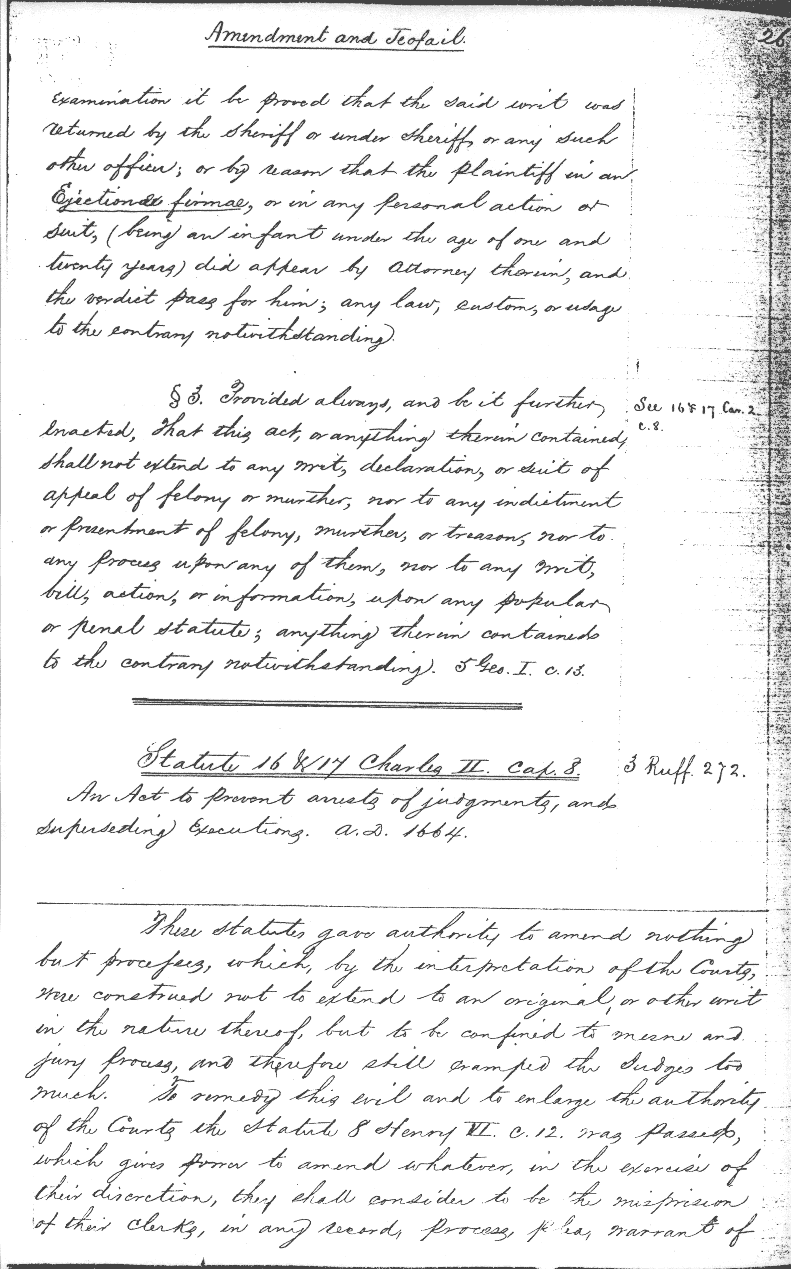 Amendment and Jeofail.
26
examination it be proved that the said writ was
returned by the Sheriff or under Sheriff, or any such
other officer; or by reason that the plaintiff in an
Ejectionae firmae, or in any personal action or
suit, (being an infant under the age of one and
twenty years) did appear by Attorney therein, and
the verdict pass for him; any law, custom, or usage
to the contrary notwithstanding.
§ 3. Provided always, and be it further
enacted, That this act, or anything therein contained,
shall not extend to any writ, declaration, or suit of
appeal of felony or murther, nor to any indictment
or presentment of felony, murther, or treason, nor to
any process upon any of them, nor to any writ,
bill, action, or information, upon any popular
or penal statute; anything therein contained
to the contrary notwithstanding. 5 Geo. I. c. 13.
See 16 & 17 Car. 2
c. 8.
Statute 16 & 17 Charles II. Cap. 8.
3 Ruff. 272.
An Act to prevent arrests of judgments, and
superseding Executions. A.D. 1664.
These statutes gave authority to amend nothing
but processes, which, by the interpretation of the Courts,
were construed not to extend to an original, or other writ
in the nature thereof, but to be confined to mesne and
jury process, and therefore still cramped the Judges too
much. To remedy this evil and to enlarge the authority
of the Courts the Statute 8 Henry VI. c. 12. was passed,
which gives power to amend whatever, in the exercise of
their discretion, they shall consider to be the misprision
of their clerks, in any record, process, plea, warrant of